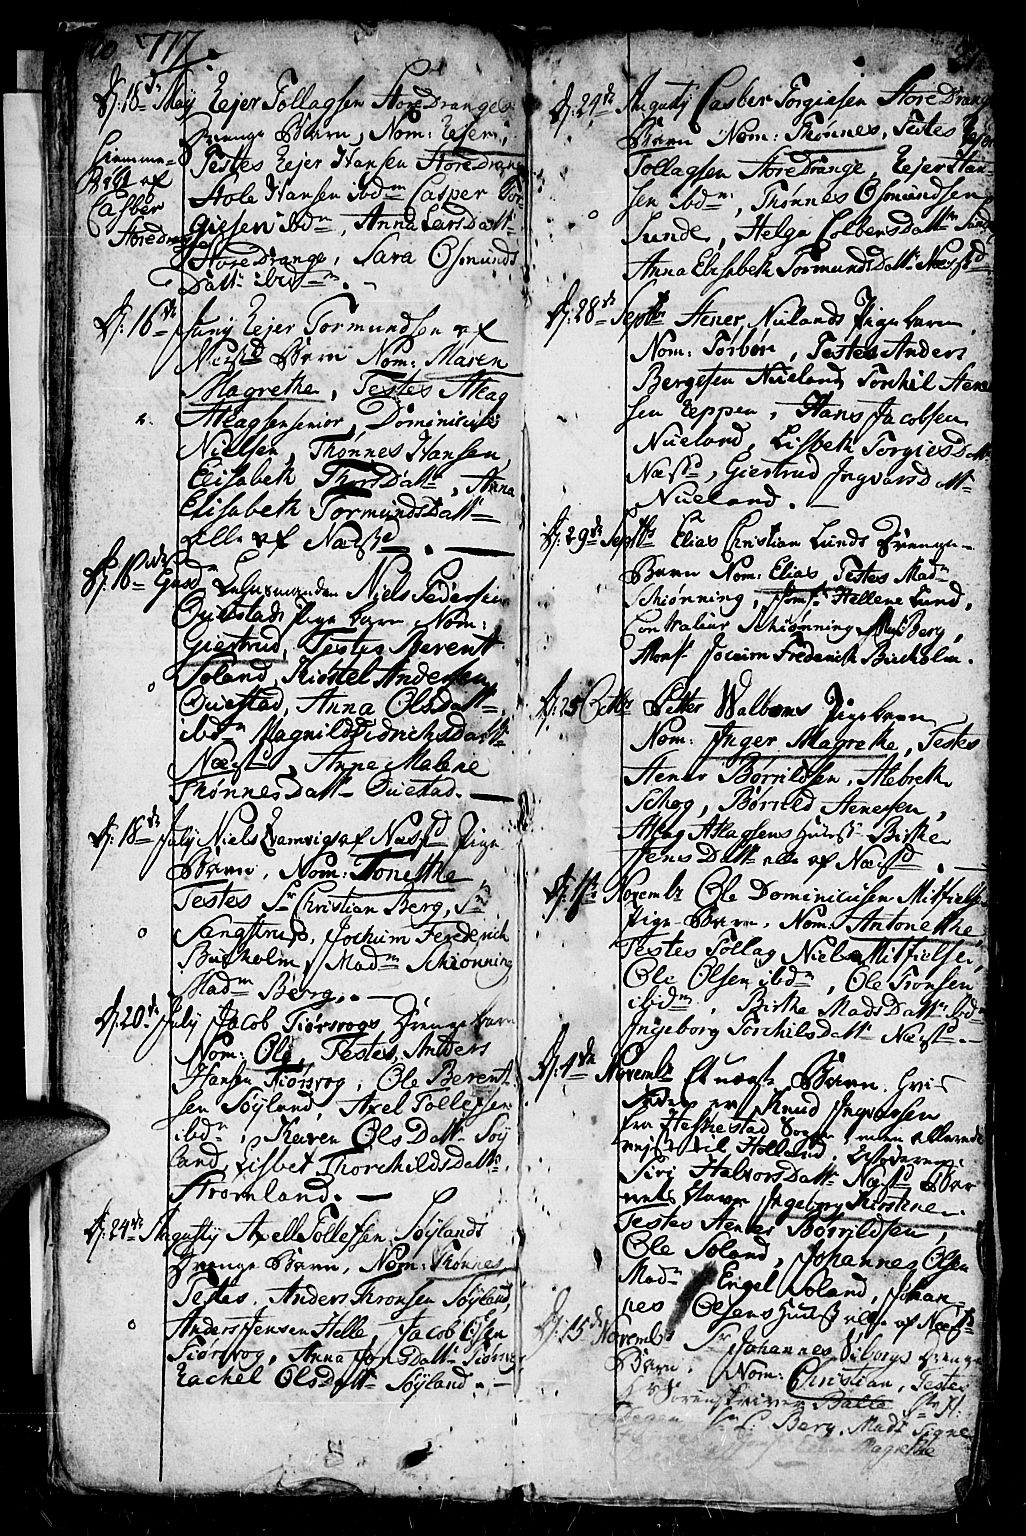 777.
D: 18de Maij Eejer Tollagsen Store Drange
Drenge Barn, Nom: Eejer,
Hiemme-
Testes Eejer Hansen Store Drange
døbt af
Stole Hansen ibdm Casper Tor-
Casber
giesen ibdm, Anna Lars Datt:
Store Drange
Store Drange, Sara Osmunds
Datt: ibidm. -
D: 16de Junij Eejer Tormundsen af
Næstd Barn Nom: Maren
Magrethe, Testes Akag
Akagsen senior, Dominicus
Nielsen, Thønnes Hansen,
Elisabeth Thors Datt:, Anna
Elisabeth Tormunds Datt:
alle af Næstd. -
D: 10de Niels Pedersen
Qvistads Pige barn, Nom:
Giertrud, Testes Berent
Soland, Kirstel Andersen
Qviestad, Anna Ols Datt:
ibdm Magnild Didrichs Datt:
Næstd, Anne Malene
Thønnes Datt: Qviestad. -
D: 18de Julij Niels af Næstd Pige
Barn, Nom: Tonethe
Testes Sr Christian Berg, Sr
Sangstrup, Jochum Frederich
Buchholm, Madm Schionning
Madm Berg. -
D: 20de Julij Jacob Tiørsvogs Drenge barn
Nom: Ole, Testes, Anders
Hansen Tiørsvog, Ole Berent-
sen Søyland, Axel Tollefsen
ibdm, Karen Ols Datt: Søy
land, Lisbet Thorchilds datt:
Strømland. -
D: 24de Augustij Axel Tollefsen Søylands
Drenge Barn, Nom: Thønnes
Testes, Anders Thronsen Søyland,
Anders Jensen Helle, Jacob Olsen
Tiørsvog, Anna Jons Datt: Tiørsvog
Rachel Ols Datt: Søyland. -
D: 24de Augustij Casber Torgiesen Store Drange
Barn Nom: Thønnes, Testes Eejer
Tollagsen Store Drange, Eejer Han-
sen ibdm, Thønnes Osmundsen
Lunde, Helga Colbens Datt:
Anna Elisabeth Tormunds Datt: Næstd
D: 28de Septbr Aener Nuelands Pige barn
Nom: Torbor, Testes Anders
Bergesen Nueland, Torkil Aener-
sen Eeppen, Hans Jacobsen
Nueland, Lisbeth Torgies Datt:
Næstd, Giertrud Ingvars Datt:
Nueland. -
D: 29de Septbr Elias Christian Lunds Drenge-
Barn Nom: Elias, Testes Madm
Schiønning, Jomfr Hellene Lund,
Controlleur Schiønning, Berg,
Monsr Jochim Frederich Bucholm.
D: 25 Octbr Petter Walboms Pige barn
Nom: Inger Magrethe, Testes
Aener Børrildsen, Albreth
Schog, Børreld Aenersen,
Akag Akagsens Hustr Birthe
Jens Datt: alle af Næstd. -
D: 1ste Novembr Ole Dominicusen Mitfielsen
Pige Barn, Nom: Antonethe
Testes Tollag Nielsen Mitfielsen,
Ole Olsen ibdm, Ole Tronsen
ibidm, Birthe Mads Datt: ibdm
Ingeborg Torchils Datt: Næstd. -
D: 4de Novembr Et uægte Barn, hvis
Fader er Knud Ingvorsen
fra Heskestad Sogn, men allerede
rejst til Holland,
Siri Halvors Datt: Næstd Bar
nets Navn Ingeborg Kirstine.
Testes Aener Børrildsen,
Ole Soland, Johannes Olsen
Madm Engel Soland, Johan-
nes Olsens Hustr alle af Næstd
D: 15de Novembr Sr Johannes Viborgs Drenge
Barn, Nom: Christian, Testes
Sorenskriver Balle Sr H:
Sr C: Berg, Mads Signe
Magrethe